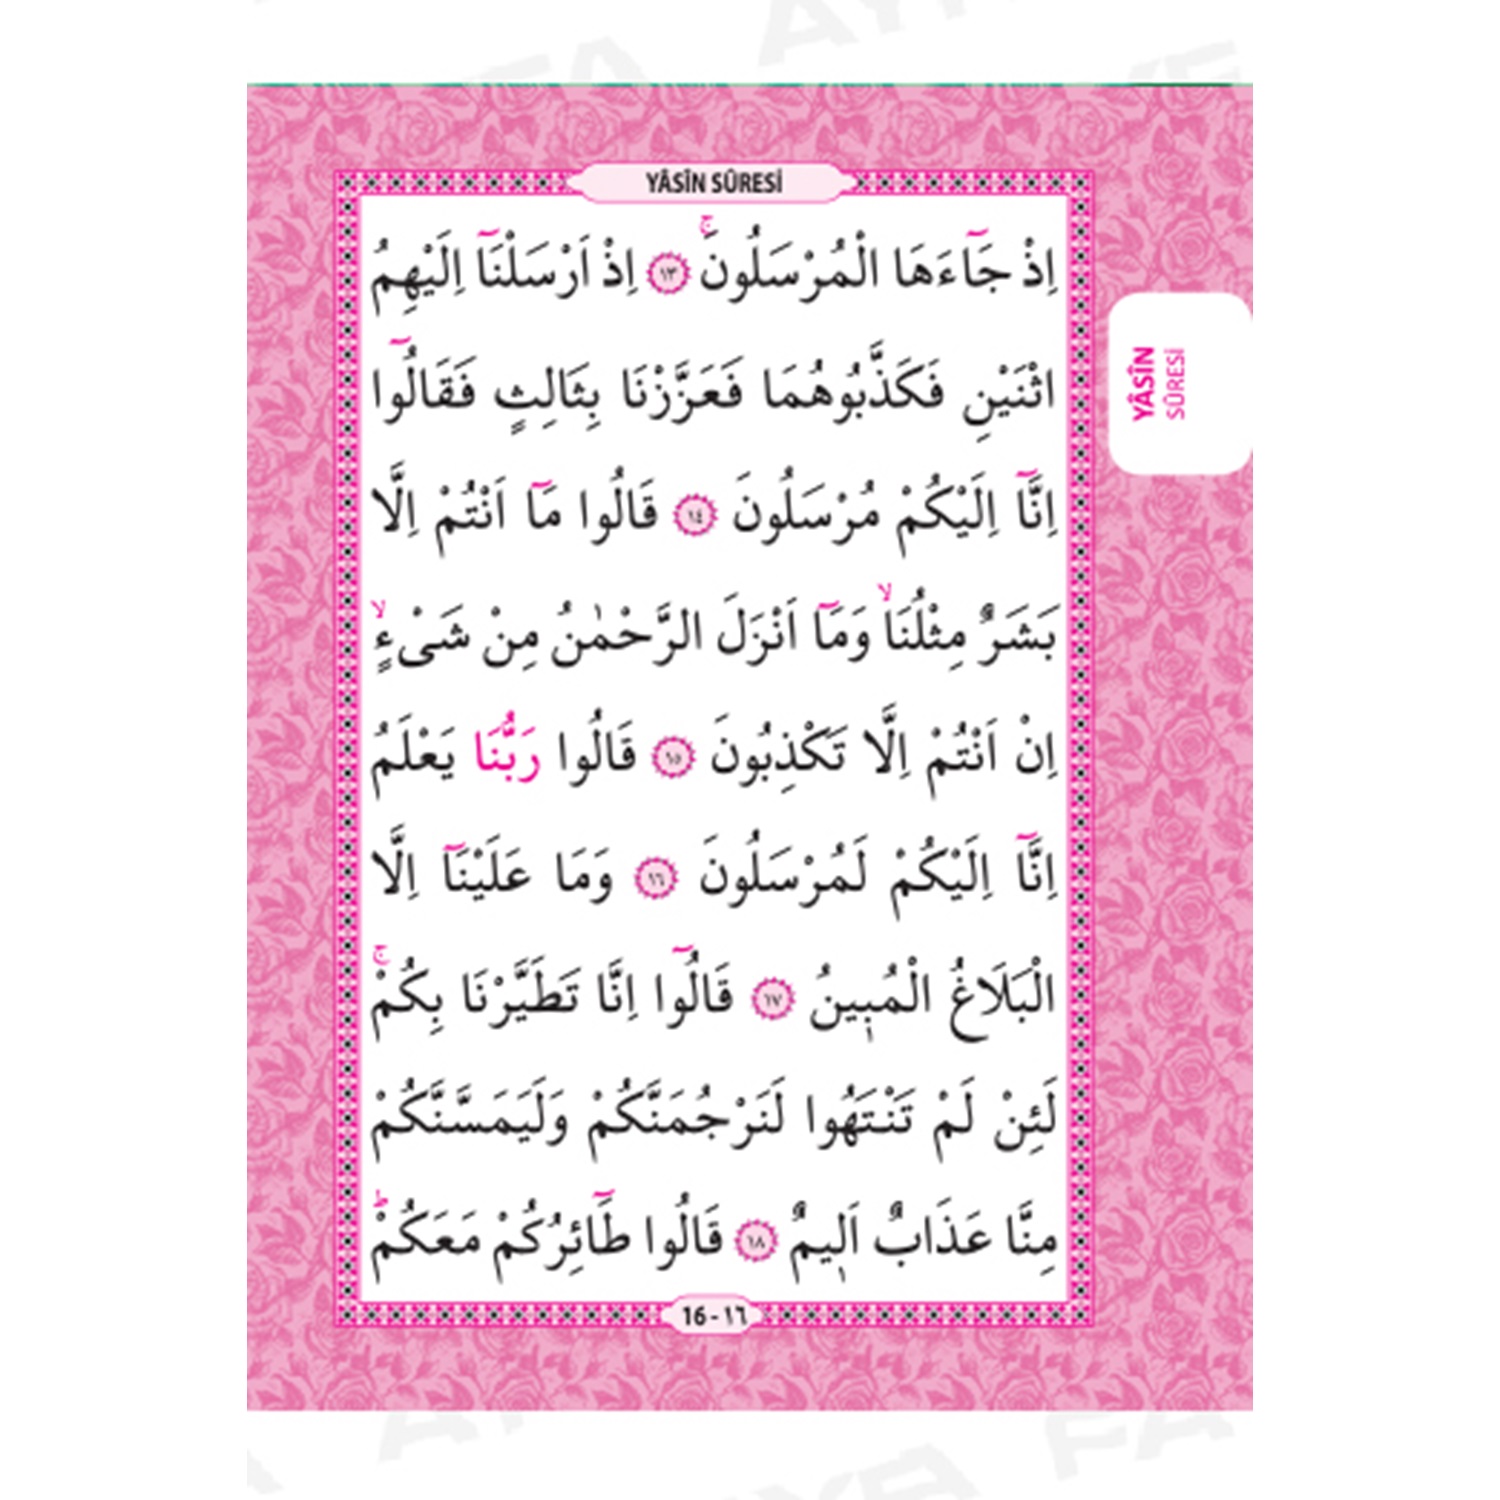 YÂSÎN SÛRESİ
اِذْ جَٓاءَهَا الْمُرْسَلُونَۚ ﴿١٣﴾ اِذْ اَرْسَلْنَٓا اِلَيْهِمُ
اثْنَيْنِ فَكَذَّبُوهُمَا فَعَزَّزْنَا بِثَالِثٍ فَقَالُٓوا
اِنَّٓا اِلَيْكُمْ مُرْسَلُونَ ﴿١٤﴾ قَالُوا مَٓا اَنْتُمْ اِلَّا
بَشَرٌ مِثْلُنَاۙ وَمَٓا اَنْزَلَ الرَّحْمٰنُ مِنْ شَىْءٍۙ
اِنْ اَنْتُمْ اِلَّا تَكْذِبُونَ ﴿١٥﴾ قَالُوا رَبُّنَا يَعْلَمُ
اِنَّٓا اِلَيْكُمْ لَمُرْسَلُونَ ﴿١٦﴾ وَمَا عَلَيْنَٓا اِلَّا
الْبَلَاغُ الْمُب۪ينُ ﴿١٧﴾ قَالُٓوا اِنَّا تَطَيَّرْنَا بِكُمْۚ
لَئِنْ لَمْ تَنْتَهُوا لَنَرْجُمَنَّكُمْ وَلَيَمَسَّنَّكُمْ
مِنَّا عَذَابٌ اَل۪يمٌ ﴿١٨﴾ قَالُوا طَٓائِرُكُمْ مَعَكُمْۜ
16 - ١٦
YÂSÎN
SÛRESİ